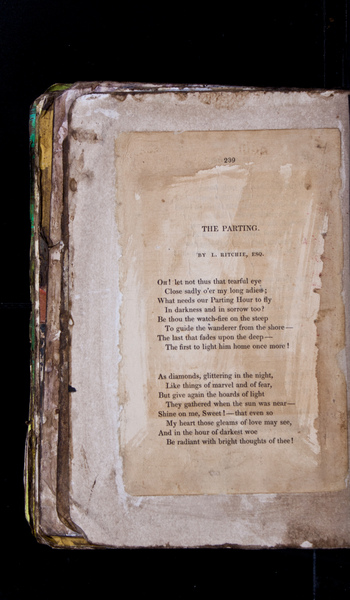 239
THE PARTING.
BY L. RITCHIE, ESQ.
OH! let not thus that tearful eye
Close sadly o'er my long adieu;
What needs our Parting Hour to fly
In darkness and in sorrow too?
Be thou the watch-fire on the steep
To guide the wanderer from the shore—
The last that fades upon the deep—
The first to light him home once more!
As diamonds, glittering in the night,
Like things of marvel and of fear,
But give again the hoards of light
They gathered when the sun was near—
Shine on me, Sweet!—that even so
My heart those gleams of love may see,
And in the hour of darkest woe
Be radiant with bright thoughts of thee!